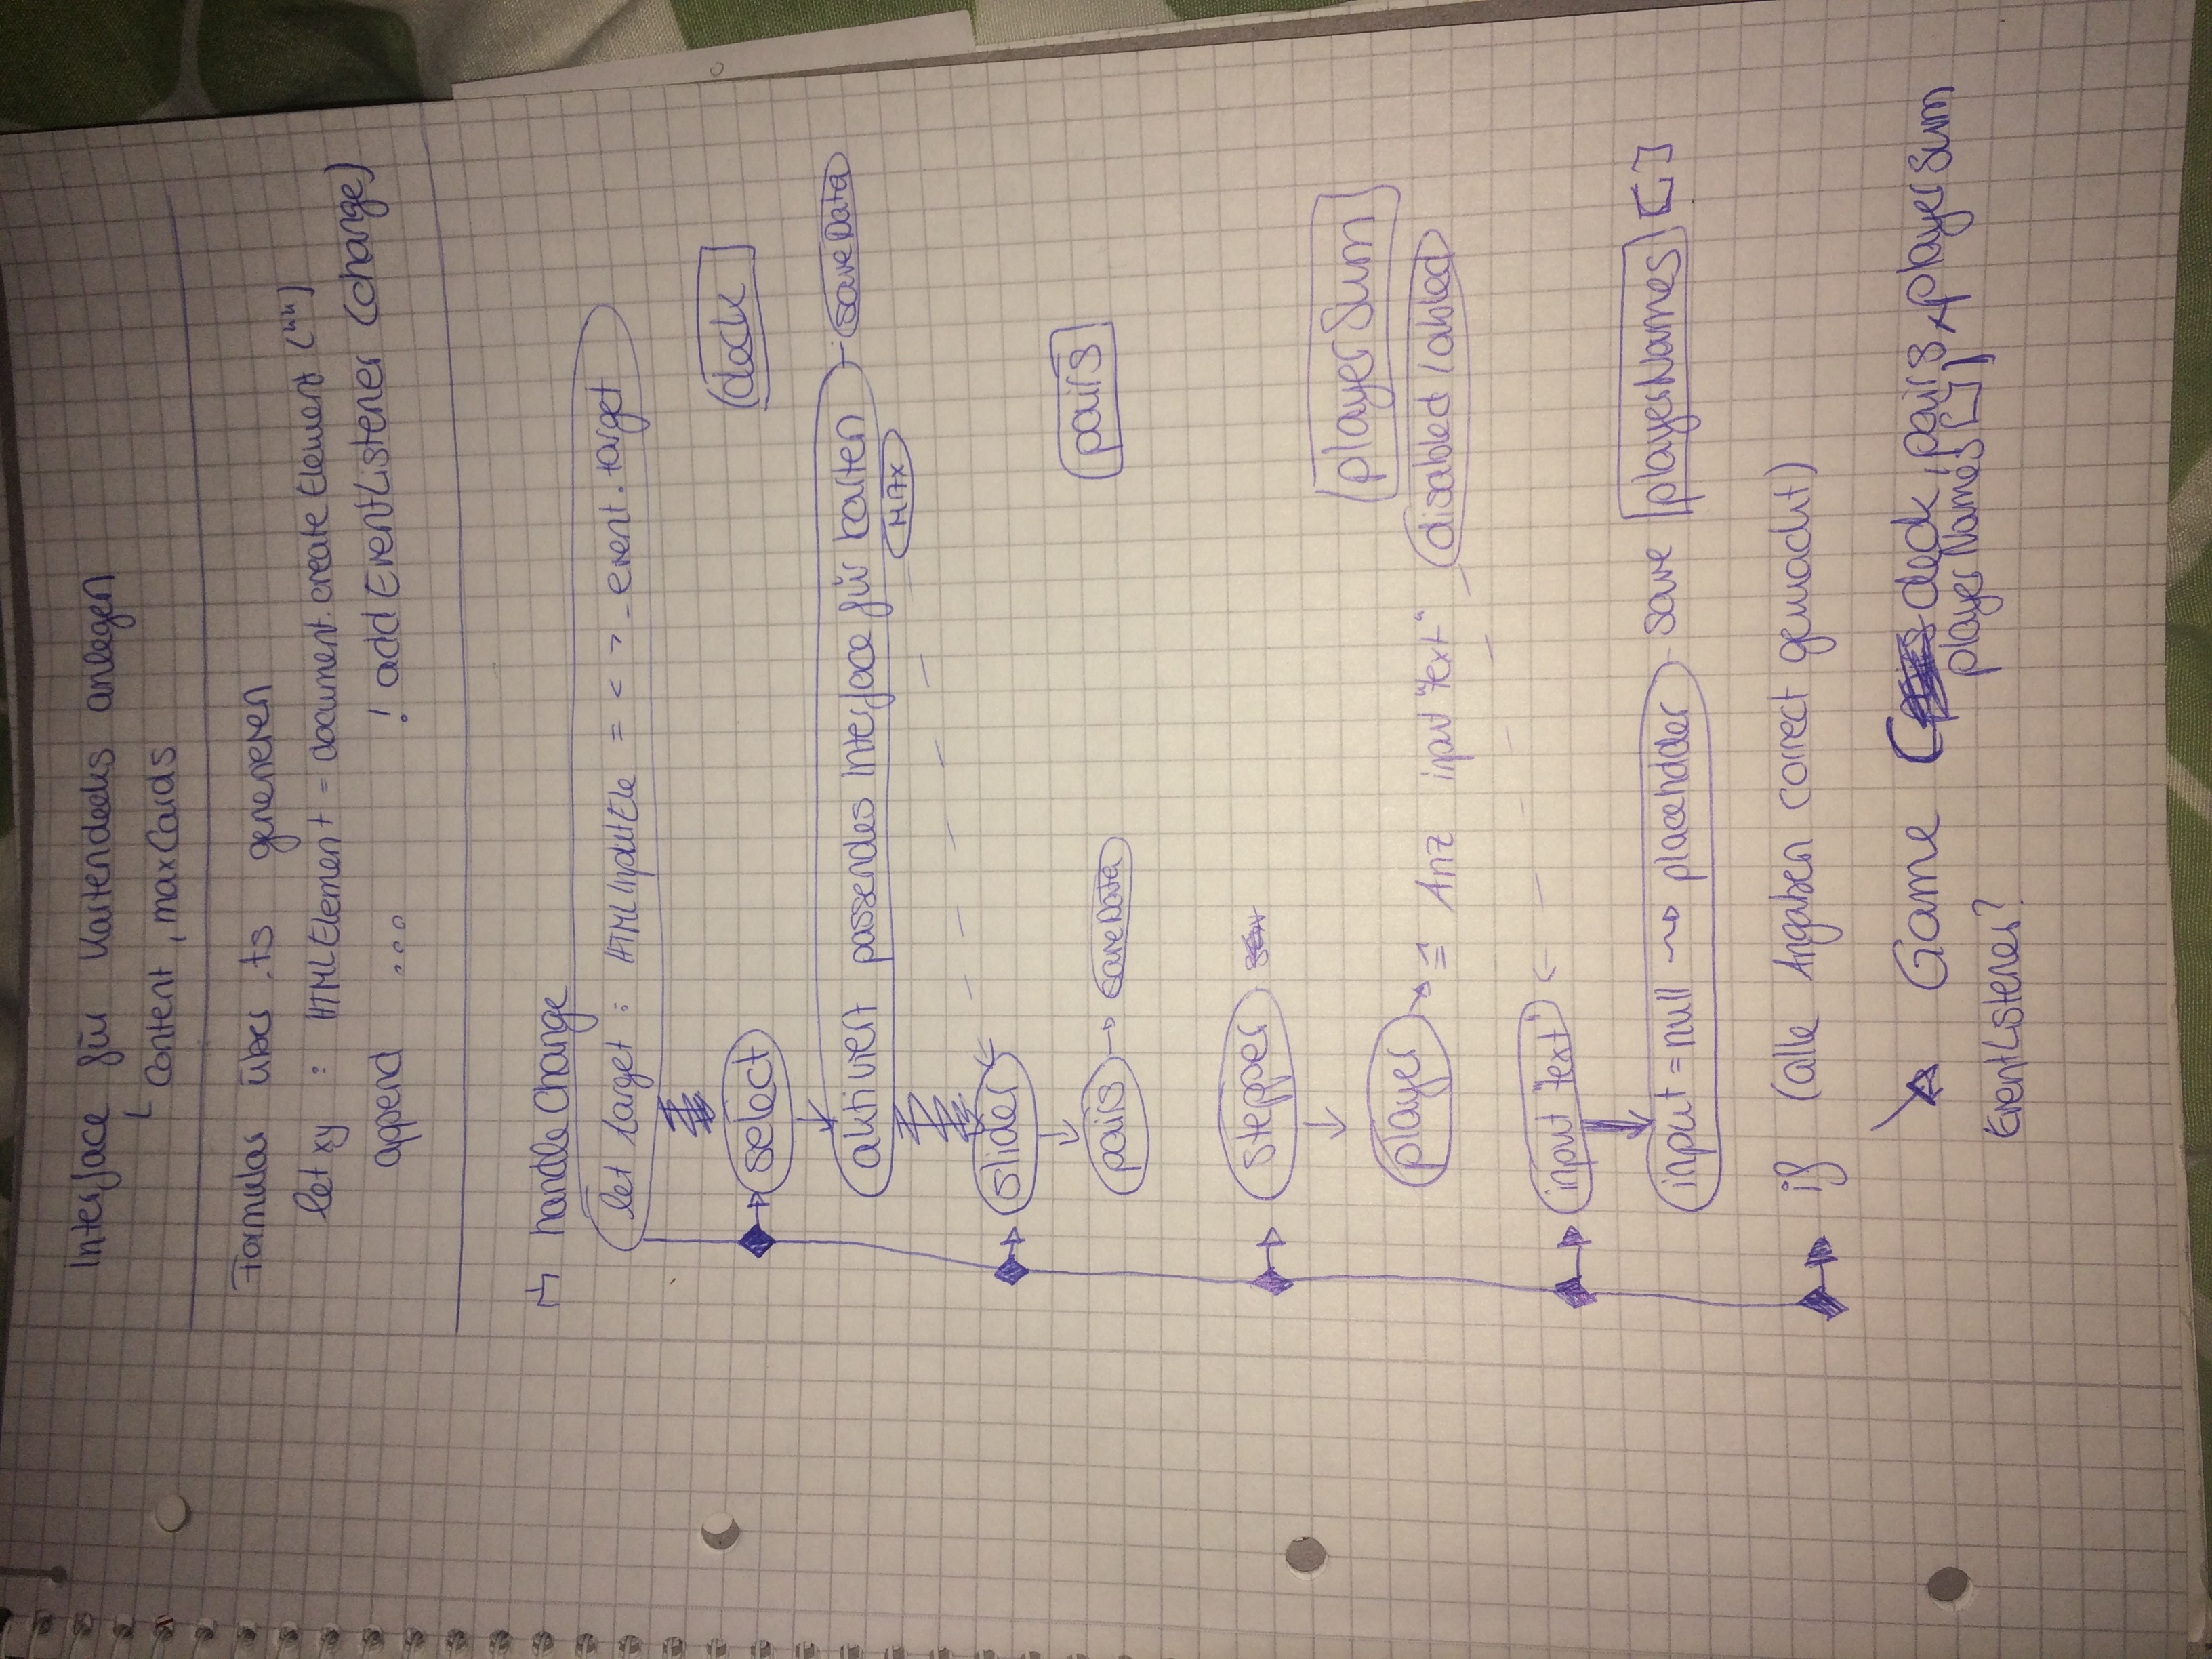 Interface für Kartendecks anlegen
Content, maxCards
Formular über .ts generieren
let xy : HTMLElement = document.createElement ("")
append ... ! addEventListener (change)
handleChange
let target : HTMLInputEle = < > _event.target
select
deck
aktiviert passendes Interface für Karten - saveData
MAX
slider
pairs → saveData
pairs
stepper
playerSum
player → ≙ Anz input "text" disabled / abled
input "text"
input = null ⇝ placeholder - save playerNames []
if (alle Angaben correct gemacht)
Game (deck, pairs, playerSum
playerNames[])
EventListener?